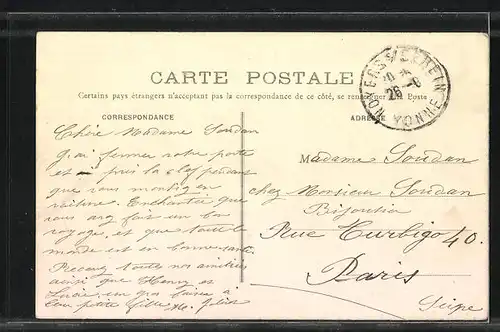 CARTE POSTALE
Certains pays étrangers n'acceptant pas la correspondance de ce côté, se renseigner à la Poste
CORRESPONDANCE
ADRESSE
NOYERS-S-SEREIN
26 -8
YONNE
Chère Madame Soudan
J'ai fermer votre porte
et pris la clef pendant
que vous montiez en
voiture. Enchantée que
vous ayez fait un bon
voyage, et que toute le
monde est en bonne santé.
Recevez toute nos amitiés
ainsi que Henry et
Lucie, un gros baiser à
leur petite fille
Madame Soudan
chez Monsieur Soudan
Bijoutier
Rue Turbigo 40.
Paris
Seine